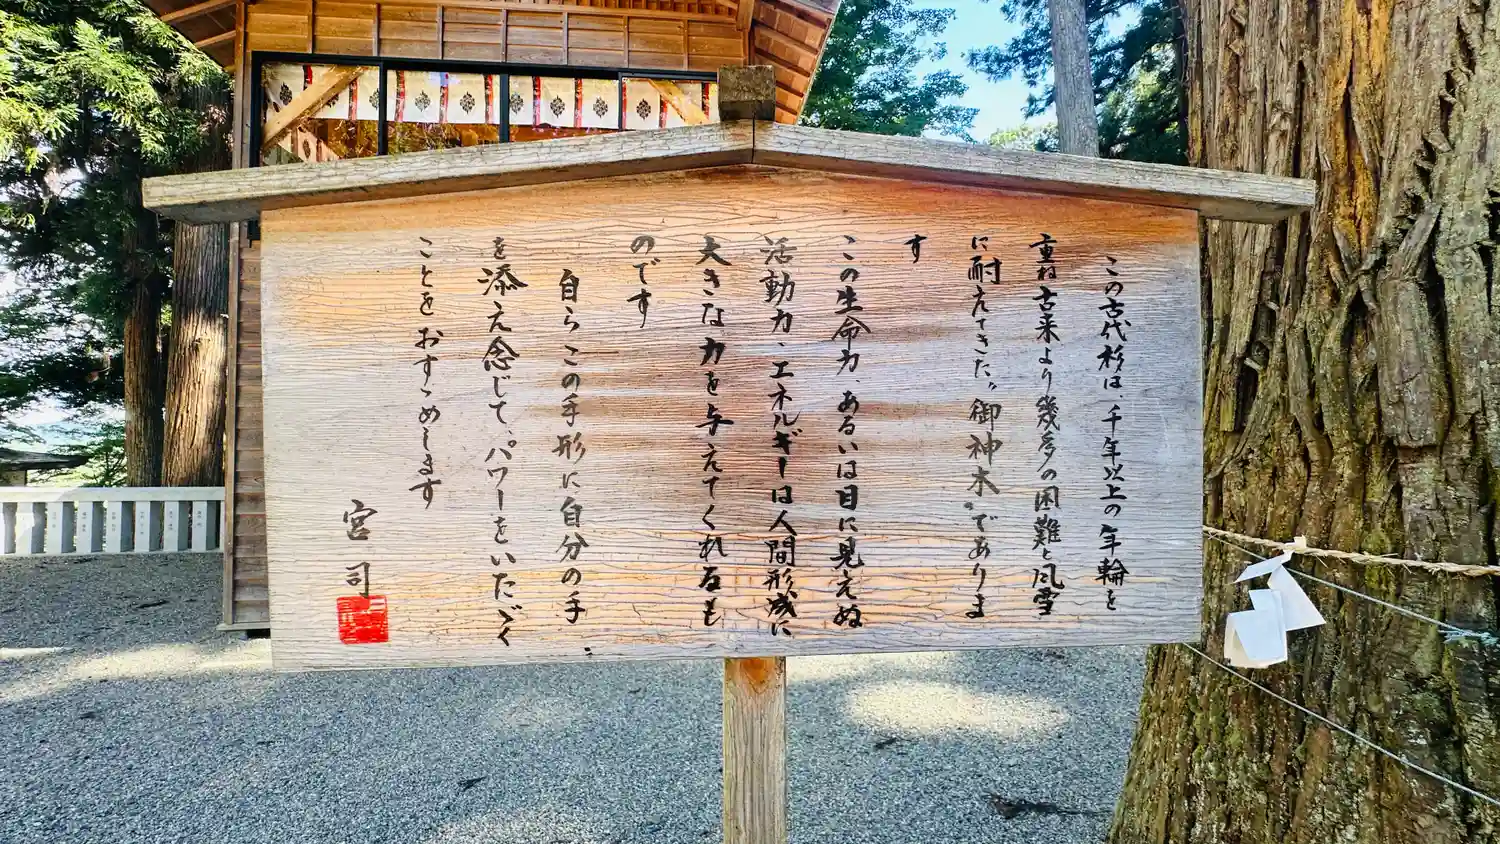 この古代杉は、千年以上の年輪を
重ね古来より幾多の困難と風雪
に耐えてきた〝御神木〟でありま
す
この生命力、あるいは目に見えぬ
活動力・エネルギーは人間形成に
大きな力を与えてくれるも
のです
自らこの手形に自分の手
を添え念じて、パワーをいたゞく
ことをおすゝめします
宮司